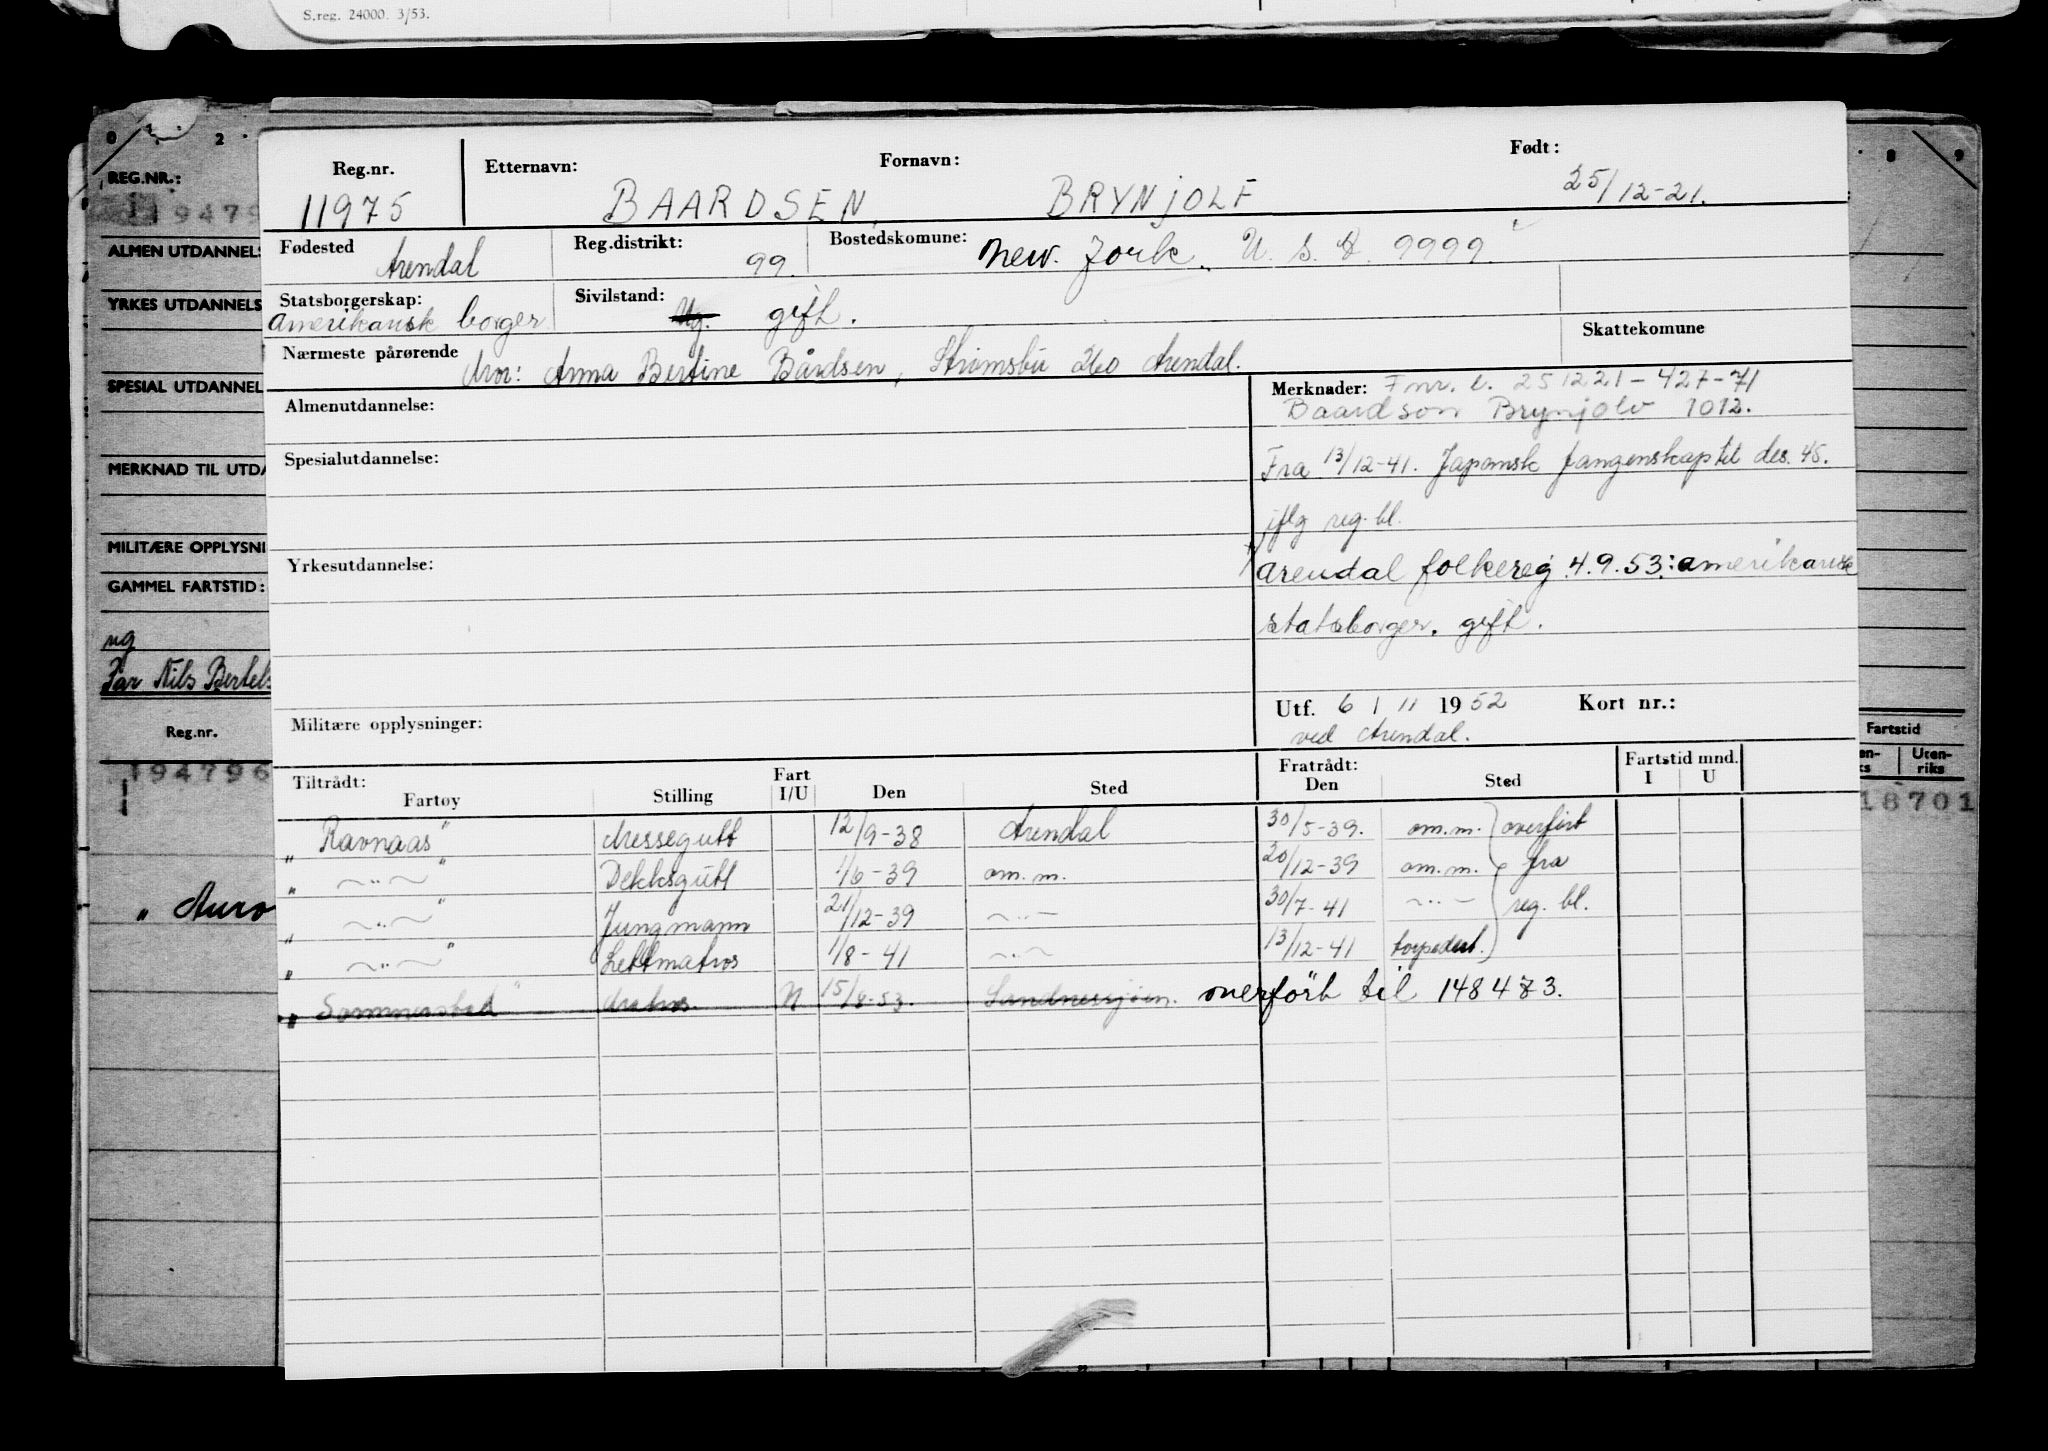 S.reg. 24000. 3/53.
0 1 · 2 · · 8 9
REG.NR.:
19479
ALMEN UTDANNELS
YRKES UTDANNELS
SPESIAL UTDANNEL
MERKNAD TIL UTDA
MILITÆRE OPPLYSNI
GAMMEL FARTSTID:
ug
Far Nils Bertels
Reg.nr.
194796
„ Auro
Reg.nr. Etternavn: Fornavn: Født:
11975 BAARDSEN, BRYNJOLF 25/12-21.
Fødested Arendal Reg.distrikt: 99. Bostedskomune: New. Jork. U. S. A. 9999.
Statsborgerskap: Amerikansk borger Sivilstand: Ug. gift.
Skattekomune
Nærmeste pårørende Mor: Anna Bertine Bårdsen, Strømsbu 260 Arendal.
Almenutdannelse:
Spesialutdannelse:
Yrkesutdannelse:
Militære opplysninger:
Merknader: Fnr. e. 251221-427-71
Baardson Brynjolv 1012.
Fra 13/12-41. Japansk fangenskap til des. 45.
iflg reg. bl.
Arendal folkereg. 4.9.53: amerikansk
statsborger. gift.
Utf. 6 / 11 1952 Kort nr.:
ved Arendal.
Fartstid
Uten-
riks
18701
Tiltrådt: Fart Fratrådt: Fartstid mnd.
Fartøy Stilling I/U Den Sted Den Sted I U
„ Ravnaas" Messegutt 12/9-38 Arendal 30/5-39. om.m. overført
„ —„— " Dekksgutt 1/6-39 om.m. 20/12-39 om.m. fra
„ —„— " Jungmann 21/12-39 —„— 30/7-41 —„— reg. bl.
„ —„— " Lettmatros 1/8-41 —„— 13/12-41 torpedert.
„ Sommerstad" Matros N 15/8-53. Sandnessjøen. overført til 148473.